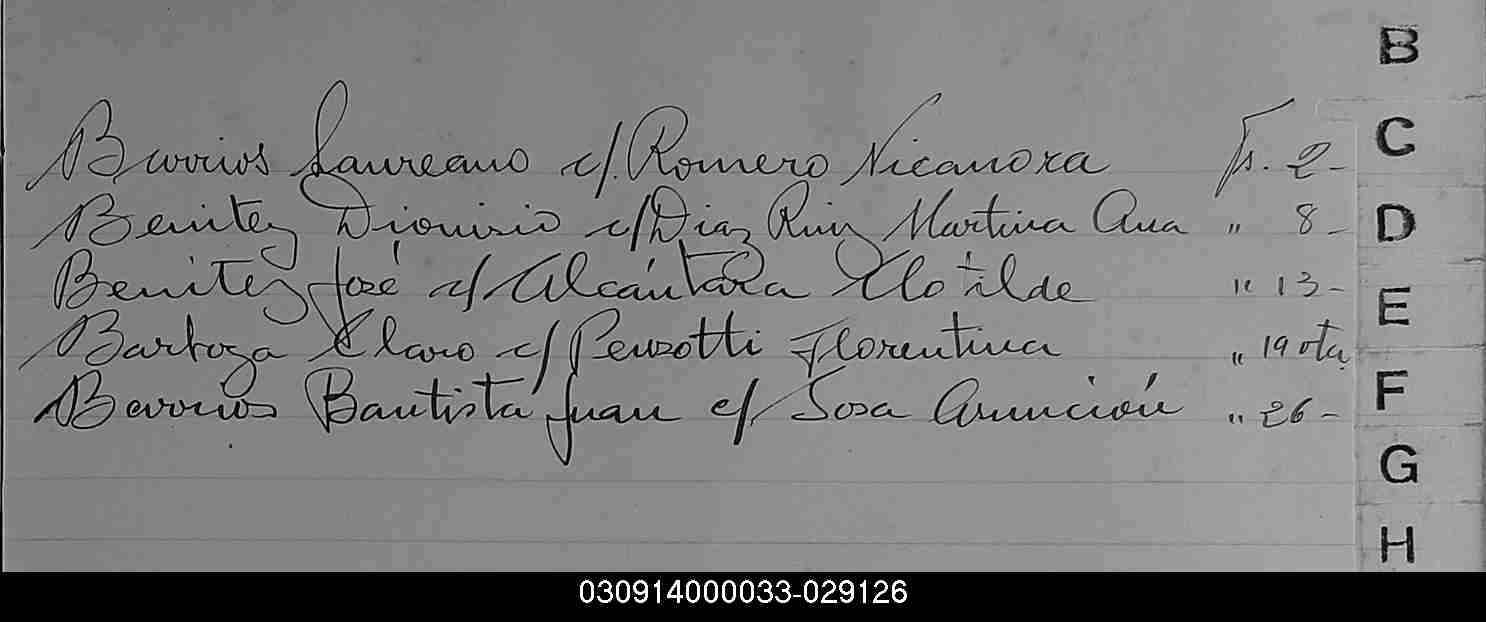 B
Barrios Laureano c/. Romero Nicanora Fs. 2-
C
Benitez Dionisio c/ Diaz Ruiz Martina Ana " 8-
D
Benitez José c/ Alcántara Clotilde " 13-
E
Bartoza Claro c/ Penzotti Florentina " 19 vta
F
Barrios Bautista Juan c/ Sosa Asunción " 26-
G
H
030914000033-029126